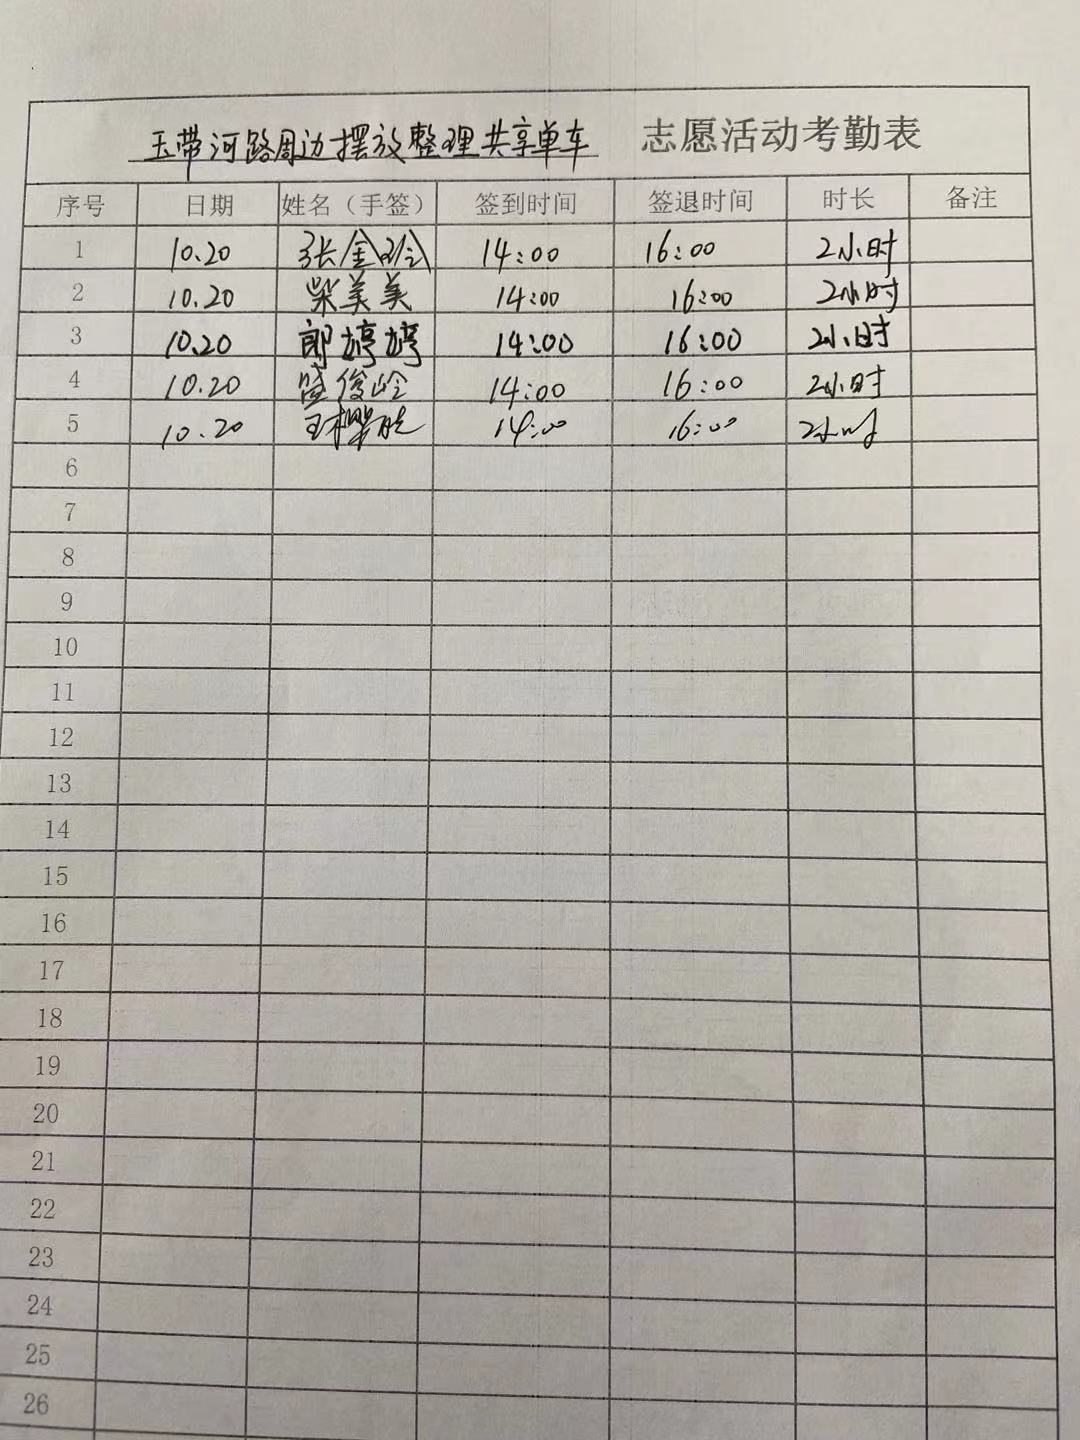 玉带河路周边摆放整理共享单车 志愿活动考勤表
序号 日期 姓名（手签） 签到时间 签退时间 时长 备注
1 10.20 张金 14:00 16:00 2小时
2 10.20 柴美美 14:00 16:00 2小时
3 10.20 郎婷婷 14:00 16:00 2小时
4 10.20 俊岭 14:00 16:00 2小时
5 10.20 14:00 16:00 2小时
6
7
8
9
10
11
12
13
14
15
16
17
18
19
20
21
22
23
24
25
26